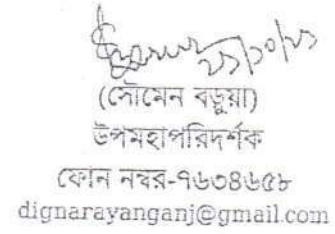 ২১/১০/২১
(সৌমেন বড়ুয়া)
উপমহাপরিদর্শক
ফোন নম্বর-৭৬৩৪৬৫৮
dignarayanganj@gmail.com